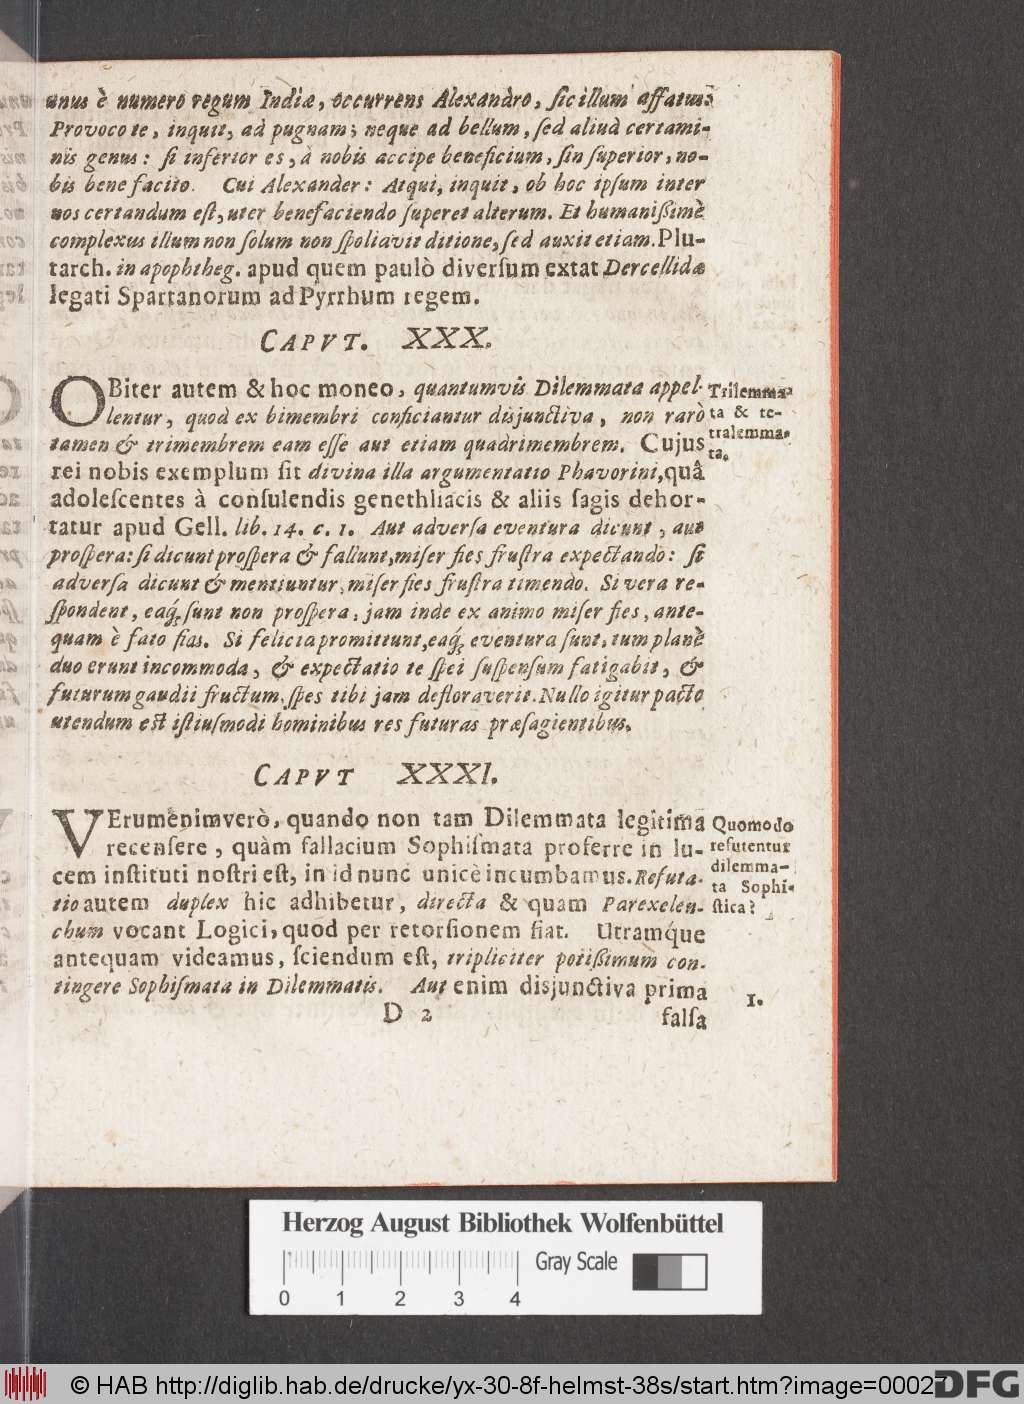 unus è numero regum Indiæ, occurrens Alexandro, sic illum affatus:
Provoco te, inquit, ad pugnam; neque ad bellum, sed aliud certami-
nis genus: si inferior es, à nobis accipe beneficium, sin superior, no-
bis benefacito. Cui Alexander: Atqui, inquit, ob hoc ipsum inter
nos certandum est, uter benefaciendo superet alterum. Et humanißimè
complexus illum non solum non spoliavit ditione, sed auxit etiam. Plu-
tarch. in apophtheg. apud quem paulò diversum extat Dercellidæ
legati Spartanorum ad Pyrrhum regem.
CAPVT. XXX.
OBiter autem & hoc moneo, quantumvis Dilemmata appel-
lentur, quod ex bimembri conficiantur disjunctiva, non rarò
tamen & trimembrem eam esse aut etiam quadrimembrem. Cujus
rei nobis exemplum sit divina illa argumentatio Phavorini, quâ
adolescentes à consulendis genethliacis & aliis sagis dehor-
tatur apud Gell. lib. 14. c. 1. Aut adversa eventura dicunt, aut
prospera: si dicunt prospera & fallunt, miser fies frustra expectando: si
adversa dicunt & mentiuntur, miser fies frustra timendo. Si vera re-
spondent, eaq́; sunt non prospera, jam inde ex animo miser fies, ante-
quam è fato fias. Si felicia promittunt, eaq́; eventura sunt, tum planè
duo erunt incommoda, & expectatio te spei suspensum fatigabit, &
futurum gaudii fructum, spes tibi jam defloraverit. Nullo igitur pacto
utendum est istiusmodi hominibus res futuras præsagientibus.
Trilemma-
ta & te-
tralemma-
ta.
CAPVT XXXI.
VErumenimverò, quando non tam Dilemmata legitima
recensere, quàm fallacium Sophismata proferre in lu-
cem instituti nostri est, in id nunc unicè incumbamus. Refuta-
tio autem duplex hic adhibetur, directa & quam Parexelen-
chum vocant Logici, quod per retorsionem fiat. Utramque
antequam videamus, sciendum est, tripliciter potißimum con-
tingere Sophismata in Dilemmatis. Aut enim disjunctiva prima
Quomodo
refutentur
dilemma-
ta Sophi-
stica?
1.
D 2 falsa
Herzog August Bibliothek Wolfenbüttel
Gray Scale
0 1 2 3 4
© HAB http://diglib.hab.de/drucke/yx-30-8f-helmst-38s/start.htm?image=00027
DFG